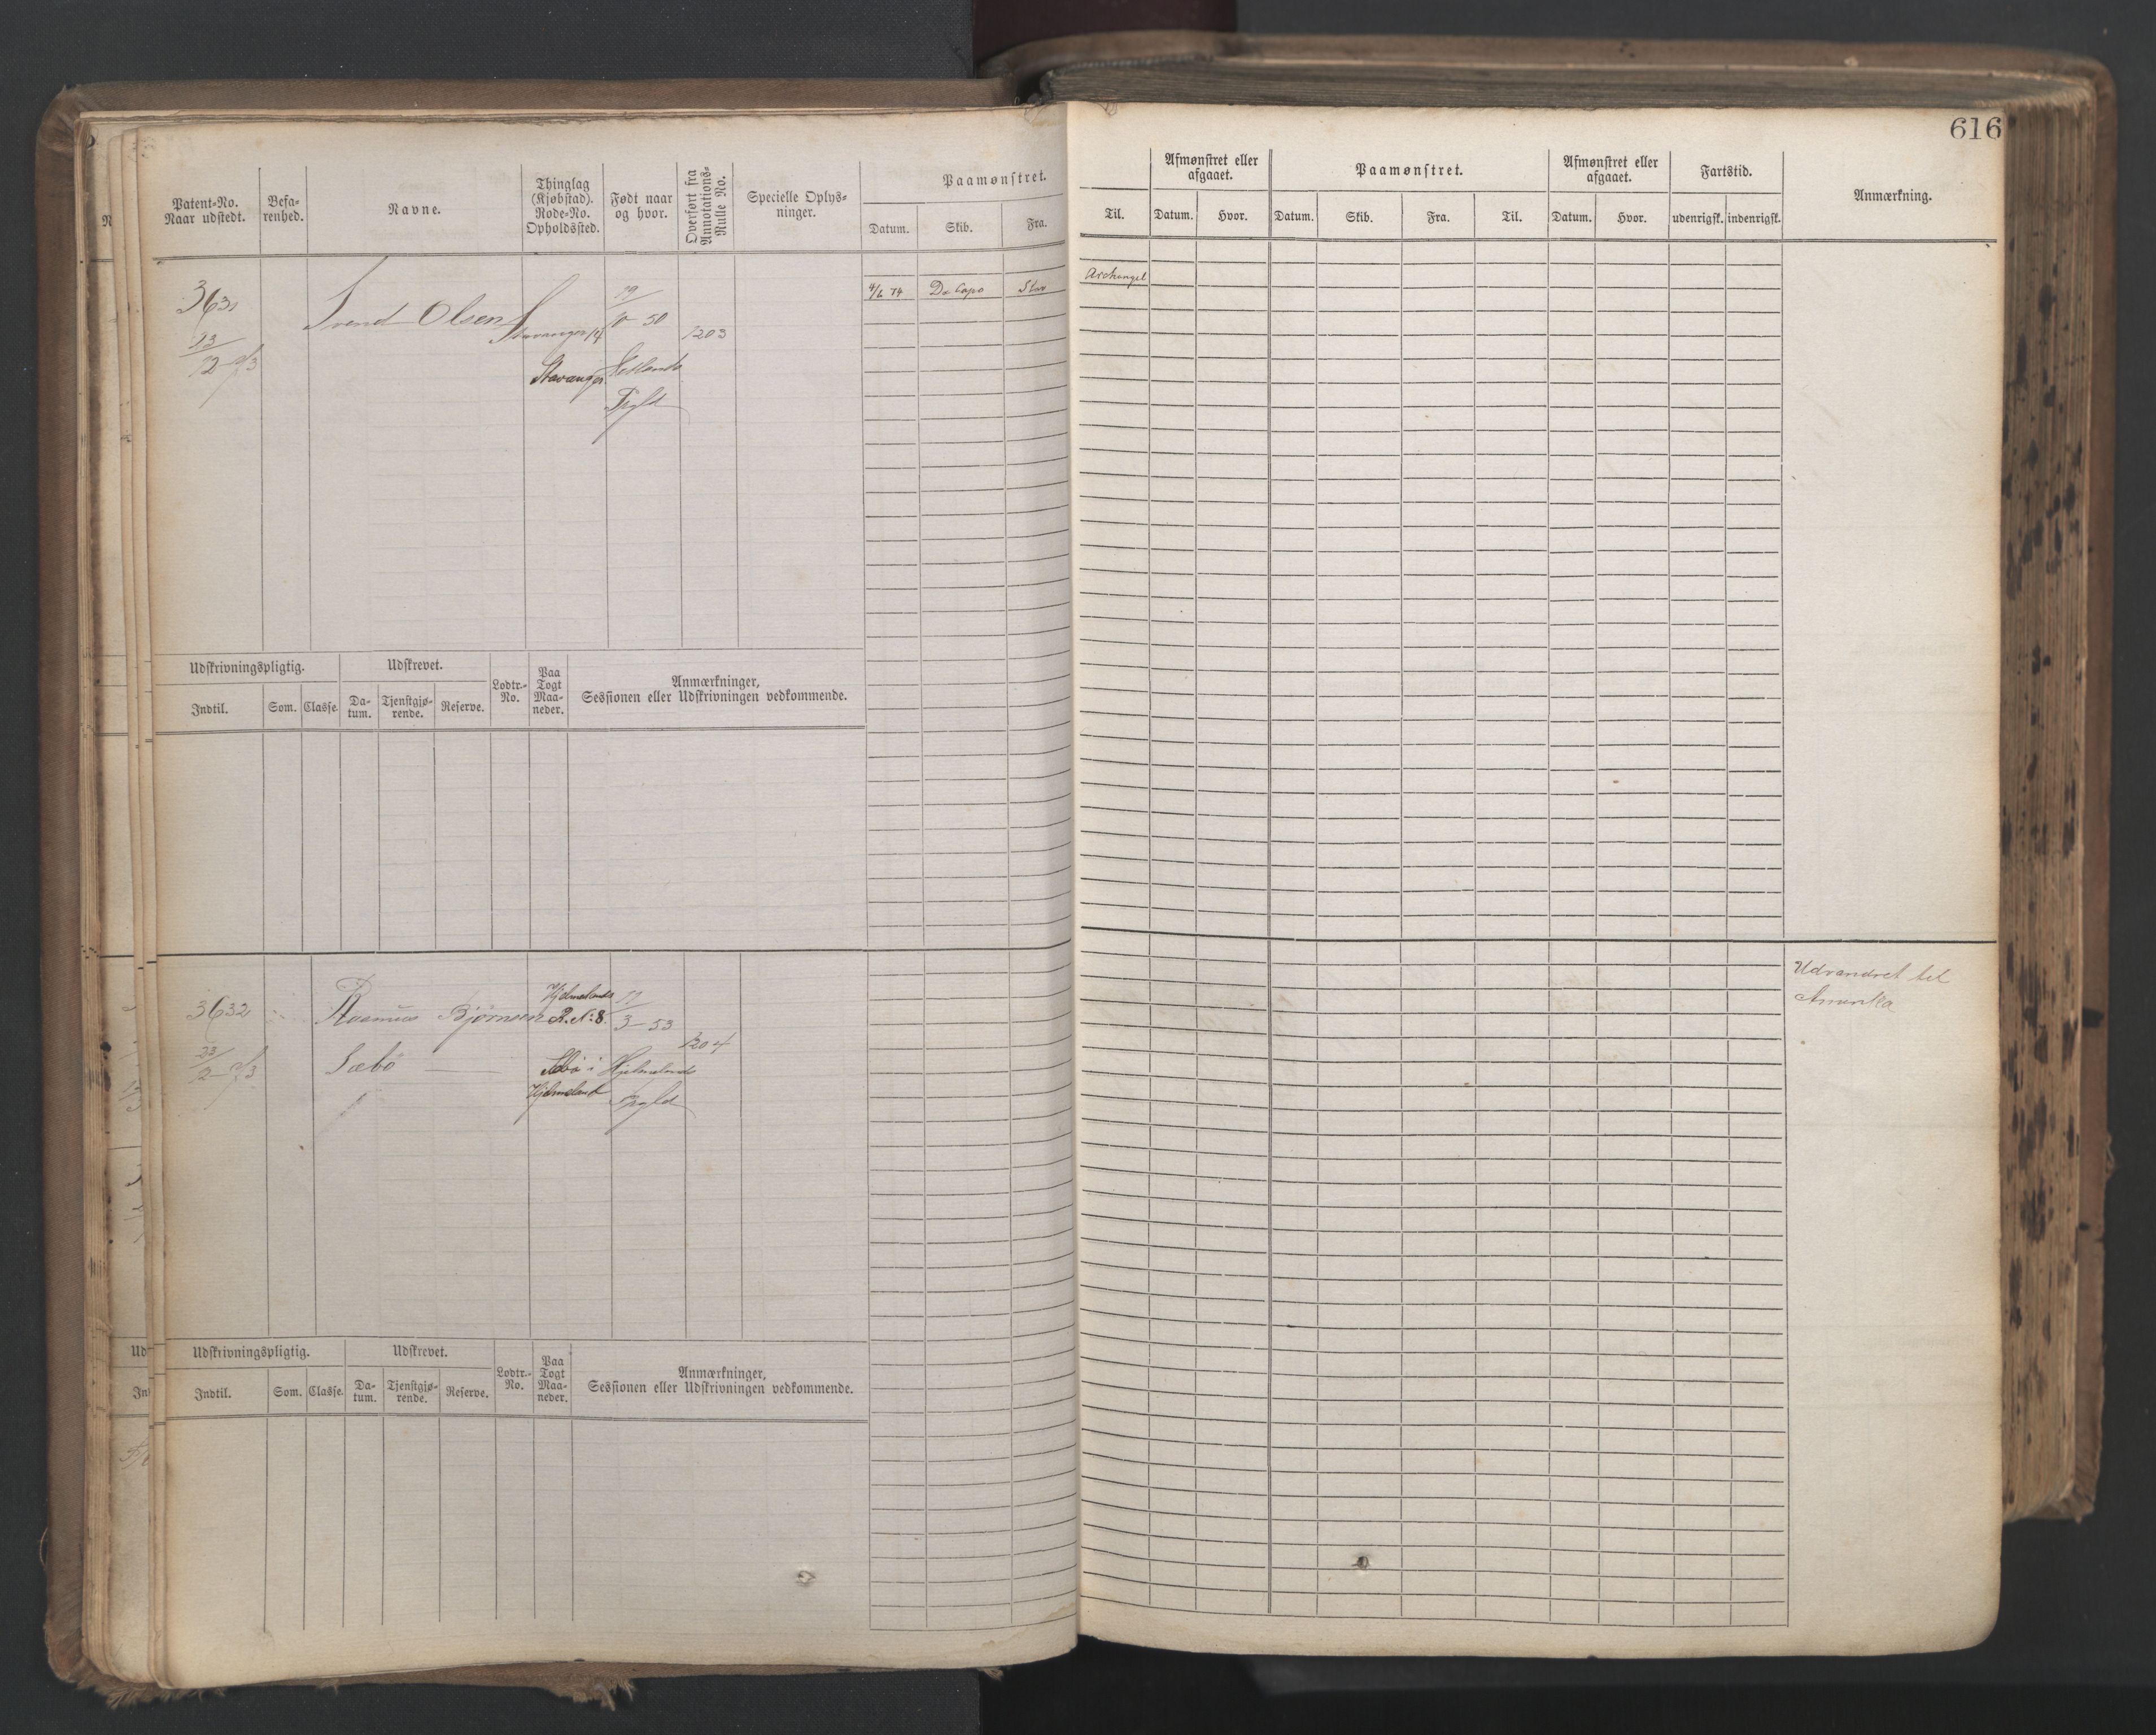 616
Patent-No. Naar udstedt.
Befarenhed.
Navne.
Thinglag (Kjøbstad). Rode-No. Opholdssted.
Født naar og hvor.
Overført fra Annotations-Rulle No.
Specielle Oplysninger.
Paamønstret.
Datum. Skib. Fra. Til.
Afmønstret eller afgaaet.
Datum. Hvor.
Paamønstret.
Datum. Skib. Fra. Til.
Afmønstret eller afgaaet.
Datum. Hvor.
Fartstid.
udenrigsk. indenrigsk.
Anmærkning.
3631
Svend Olsen
Stavanger 14
19/10 50
1203
4/6 74 Da Capo Stav Archangel
Stavanger
Hetlands
Prgld
Udskrivningspligtig.
Indtil. Som. Classe.
Udskrevet.
Datum. Tjenstgjørende. Reserve.
Lodtr.-No.
Paa Togt Maaneder.
Anmærkninger, Sessionen eller Udskrivningen vedkommende.
3632
Rasmus Bjørnsen
Hjelmelands
R. N: 8.
3-53
1204
Udvandret til
Amerika
Sæbö
Sæbö i
Hjelmeland
Hjelmelands
Prgld
Udskrivningspligtig.
Indtil. Som. Classe.
Udskrevet.
Datum. Tjenstgjørende. Reserve.
Lodtr.-No.
Paa Togt Maaneder.
Anmærkninger, Sessionen eller Udskrivningen vedkommende.